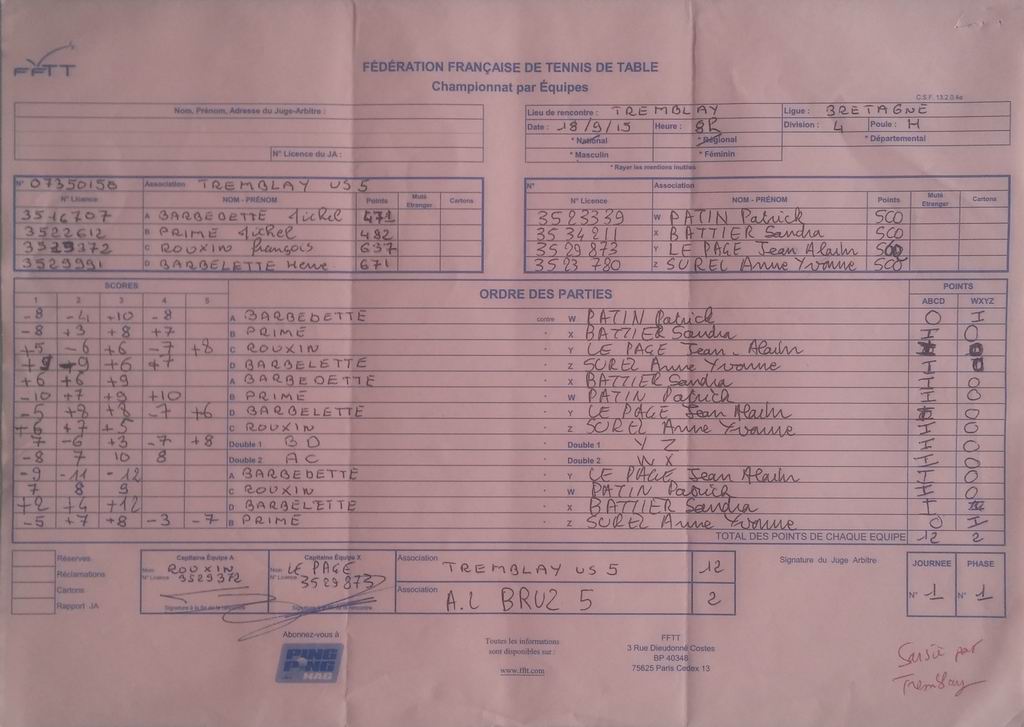 FFTT
FÉDÉRATION FRANÇAISE DE TENNIS DE TABLE
Championnat par Équipes
C.S.F. 13.2.0.4e
Nom, Prénom, Adresse du Juge-Arbitre :
N° Licence du JA :
Lieu de rencontre : TREMBLAY Ligue : BRETAGNE
Date : 18/9/15 Heure : Division : 4 Poule : H
* National * Régional * Départemental
* Masculin * Féminin
* Rayer les mentions inutiles
N° 07350150 Association TREMBLAY US 5
N° Licence NOM - PRÉNOM Points Muté Etranger Cartons
3516707 A BARBEDETTE Michel 471
3522612 B PRIME Michel 482
3529372 C ROUXIN François 637
3529991 D BARBELETTE Herve 671
N° Association
N° Licence NOM - PRÉNOM Points Muté Etranger Cartons
3523339 W PATIN Patrick 500
3534211 X BATTIER Sandra 500
3529873 Y LE PAGE Jean Alain 500
3523780 Z SUREL Anne Yvonne 500
SCORES ORDRE DES PARTIES POINTS
1 2 3 4 5 ABCD WXYZ
-8 -4 +10 -8 A BARBEDETTE contre W PATIN Patrick O I
-8 +3 +8 +7 B PRIME X BATTIER Sandra I O
+5 -6 +6 -7 +8 C ROUXIN Y LE PAGE Jean-Alain I O
+9 +9 +6 +7 D BARBELETTE Z SUREL Anne Yvonne I O
+6 +6 +9 A BARBEDETTE X BATTIER Sandra I O
-10 +7 +9 +10 B PRIME W PATIN Patrick I O
-5 +8 +8 -7 +6 D BARBELETTE Y LE PAGE Jean Alain I O
+6 +7 +5 C ROUXIN Z SUREL Anne Yvonne I O
7 -6 +3 -7 +8 Double 1 BD Double 1 YZ I O
-8 7 10 8 Double 2 AC Double 2 WX I O
-9 -11 -12 A BARBEDETTE Y LE PAGE Jean Alain I O
7 8 9 C ROUXIN W PATIN Patrick I O
+2 +4 +12 D BARBELETTE X BATTIER Sandra I
-5 +7 +8 -3 -7 B PRIME Z SUREL Anne Yvonne O I
TOTAL DES POINTS DE CHAQUE EQUIPE 12 2
Réserves
Réclamations
Cartons
Rapport JA
Capitaine Équipe A
Nom ROUXIN
N° Licence 3529372
Signature à la fin de la rencontre
Capitaine Équipe X
Nom LE PAGE
N° Licence 3529873
Signature à la fin de la rencontre
Association TREMBLAY US 5 12
Association A.L BRUZ 5 2
Signature du Juge Arbitre
JOURNEE PHASE
N° 1 N° 1
Abonnez-vous à
PING PONG MAG
Toutes les informations
sont disponibles sur :
www.fftt.com
FFTT
3 Rue Dieudonné Costes
BP 40348
75625 Paris Cedex 13
Saisie par
Tremblay